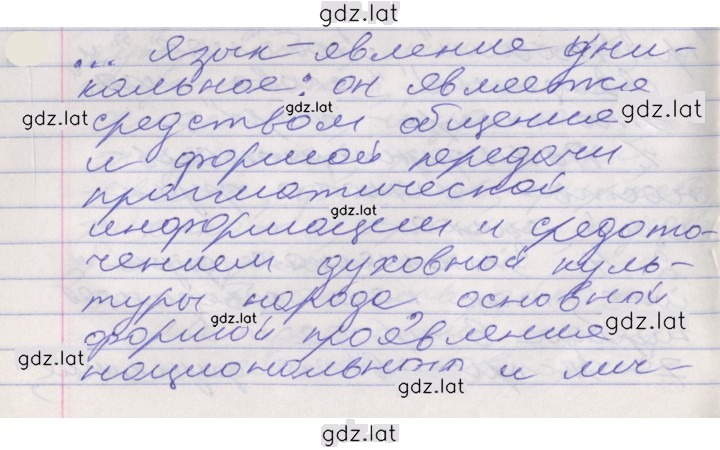 gdz.lat
... Язык – явление уни-
кальное: он является
gdz.lat
gdz.lat
gdz.lat
средством общения
и формой передачи
прагматической
gdz.lat
информации и средото-
чением духовной куль-
туры народа, основной
gdz.lat
gdz.lat
формой проявления
gdz.lat
национальной и лич-
gdz.lat
gdz.lat